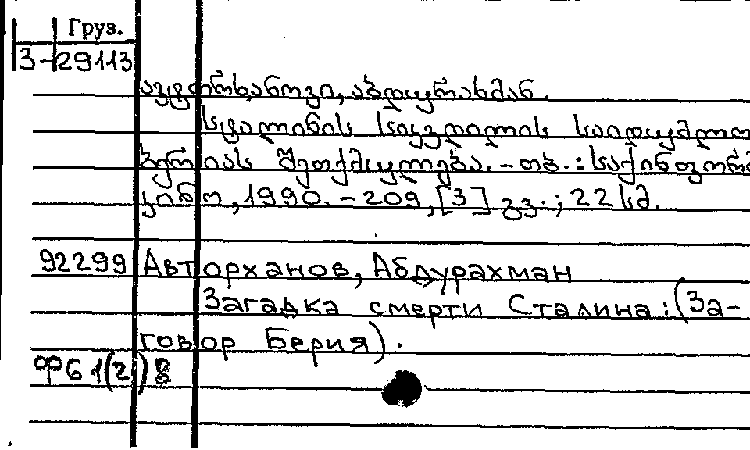 Груз.
3-29113
ავტორხანოვი, აბდურახმან.
სტალინის სიკვდილის საიდუმლო
ბერიას შეთქმულება. - თბ.: საქინფორმ
კინო, 1990. - 209, [3] გვ.; 22 სმ.
92299 Авторханов, Абдурахман
Загадка смерти Сталина: (За-
говор Берия).
Ф61(2)8